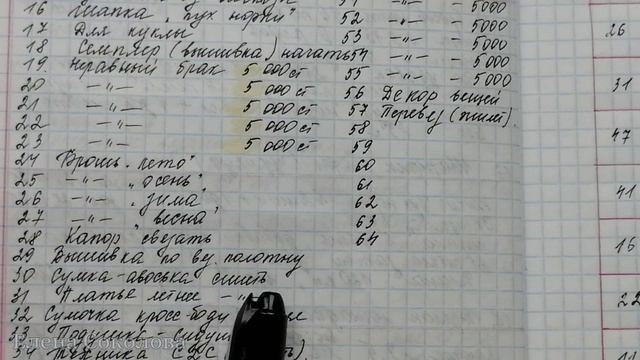 16 Шапка "пух норки"
17 Для куклы
18 Семплер (вышивка) начать
19. Неравный брак 5 000 ст
20 -"- 5 000 ст
21 -"- 5 000 ст
22 -"- 5 000 ст
23 -"- 5 000 ст
24 Брошь "лето"
25 -"- "осень"
26 -"- "зима"
27 -"- "весна"
28 Капор связать
29 Вышивка по вер. полотну
30 Сумка-авоська сшить
31 Платье летнее -"-
32 Сумочка кросс-боди
33 Подушка-
34 Техника
51 -"- - 5000
52 -"- - 5000
53 -"- - 5000
54 -"- - 5000
55 -"- - 5000
56 Декор вещей
57
58
59
60
61
62
63
64
26
31
47
41
16
22
Елена Соколова